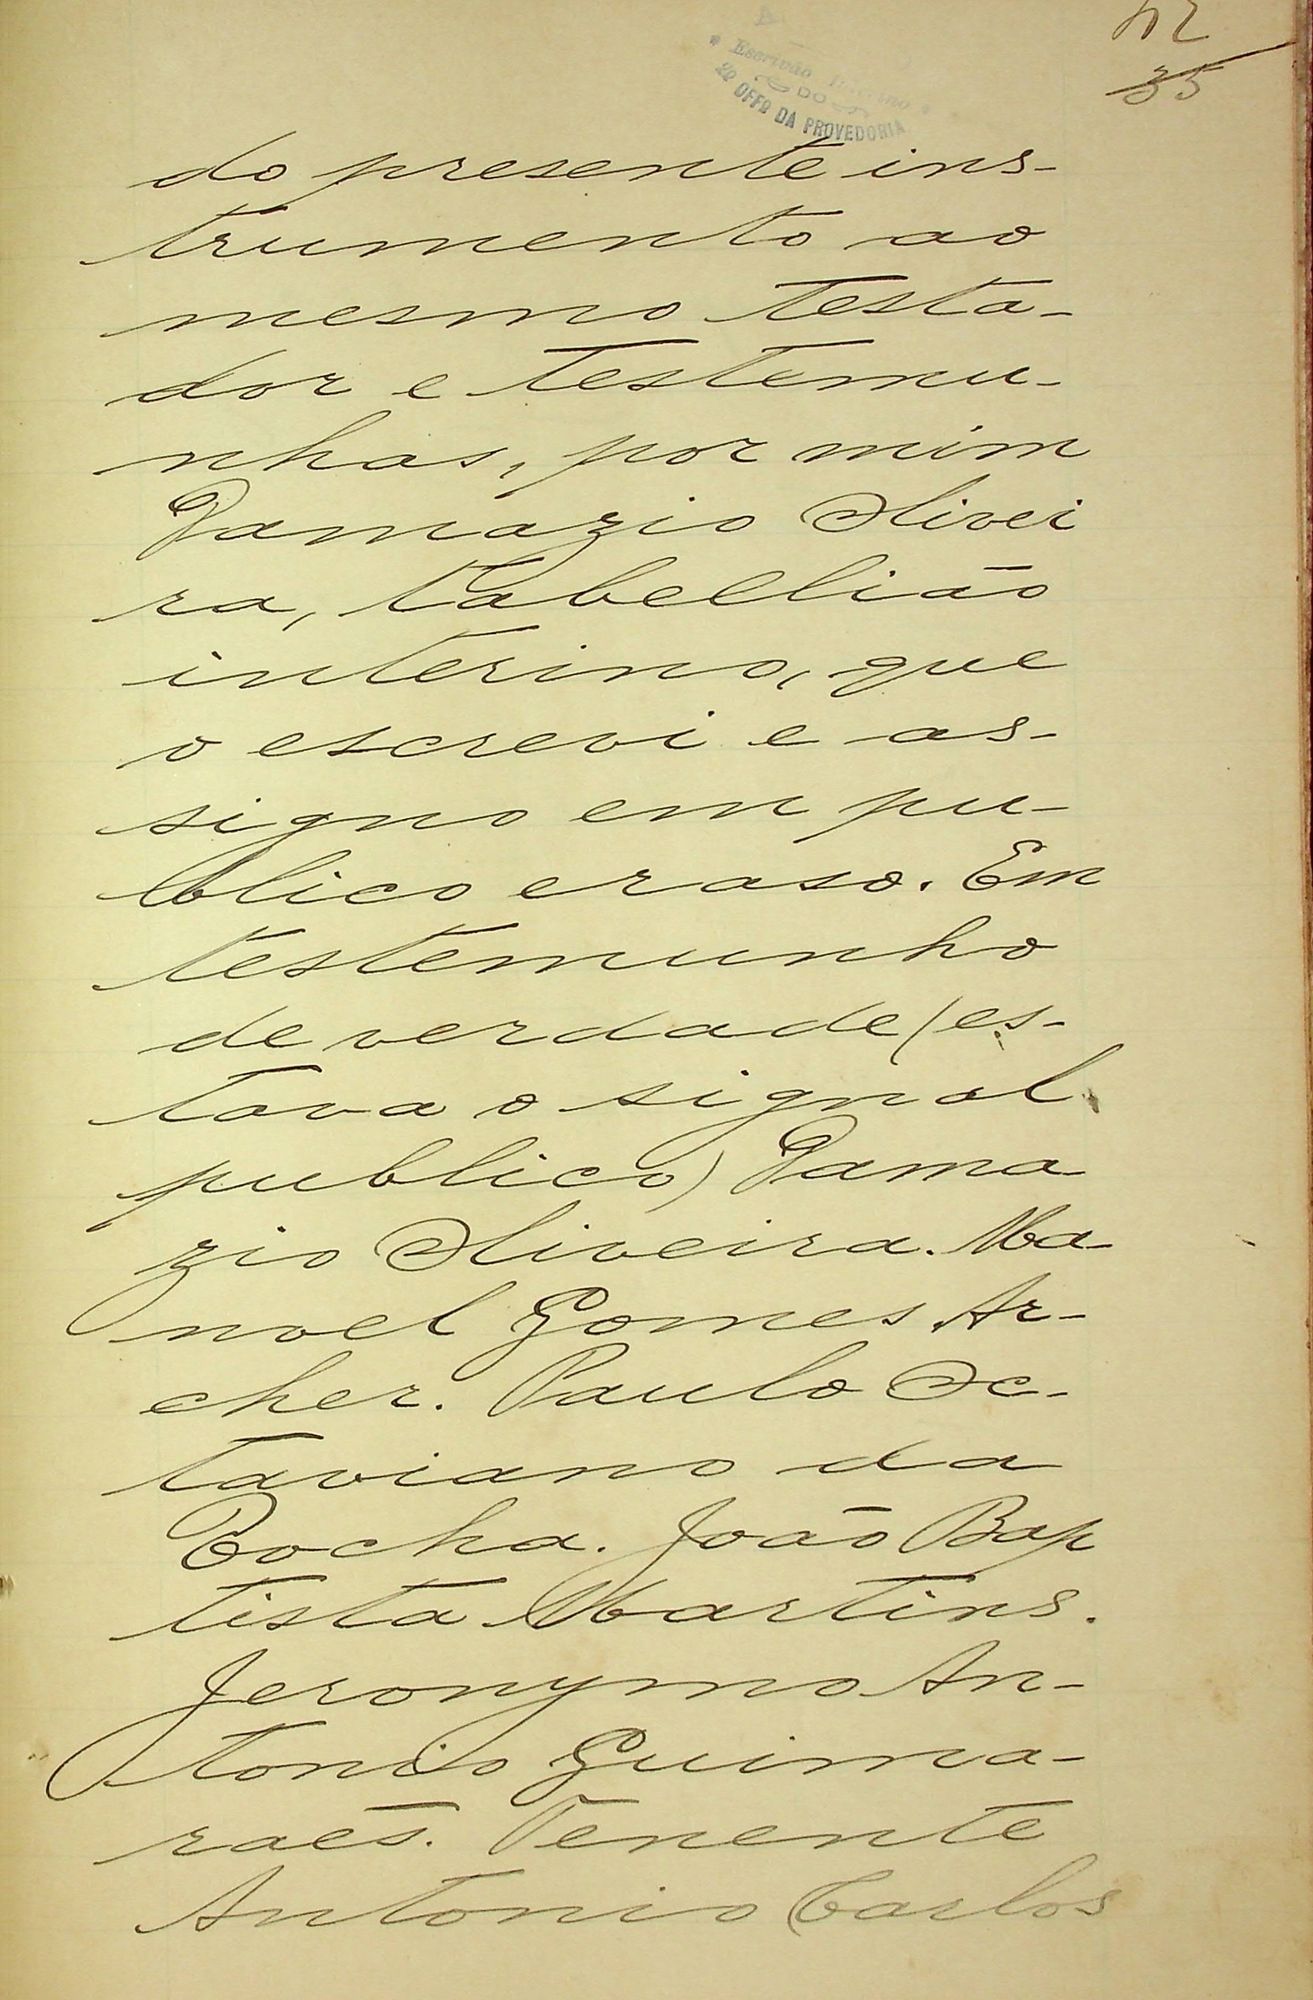 42
35
Escrivão Interino
DO
2º OFFº DA PROVEDORIA
do presente ins-
trumento ao
mesmo testa-
dor e testemu-
nhas, por mim
Damazio Olivei
ra, tabellião
interino, que
o escrevi e as-
signo em pu-
blico e raso. Em
testemunho
de verdade (es-
tava o signal
publico) Dama
zio Oliveira. Ma-
noel Gomes Ar-
cher. Paulo Oc-
taviano da
Rocha. João Bap
tista Martins.
Jeronymo An-
tonio Guima-
raẽs. Tenente
Antonio Carlos